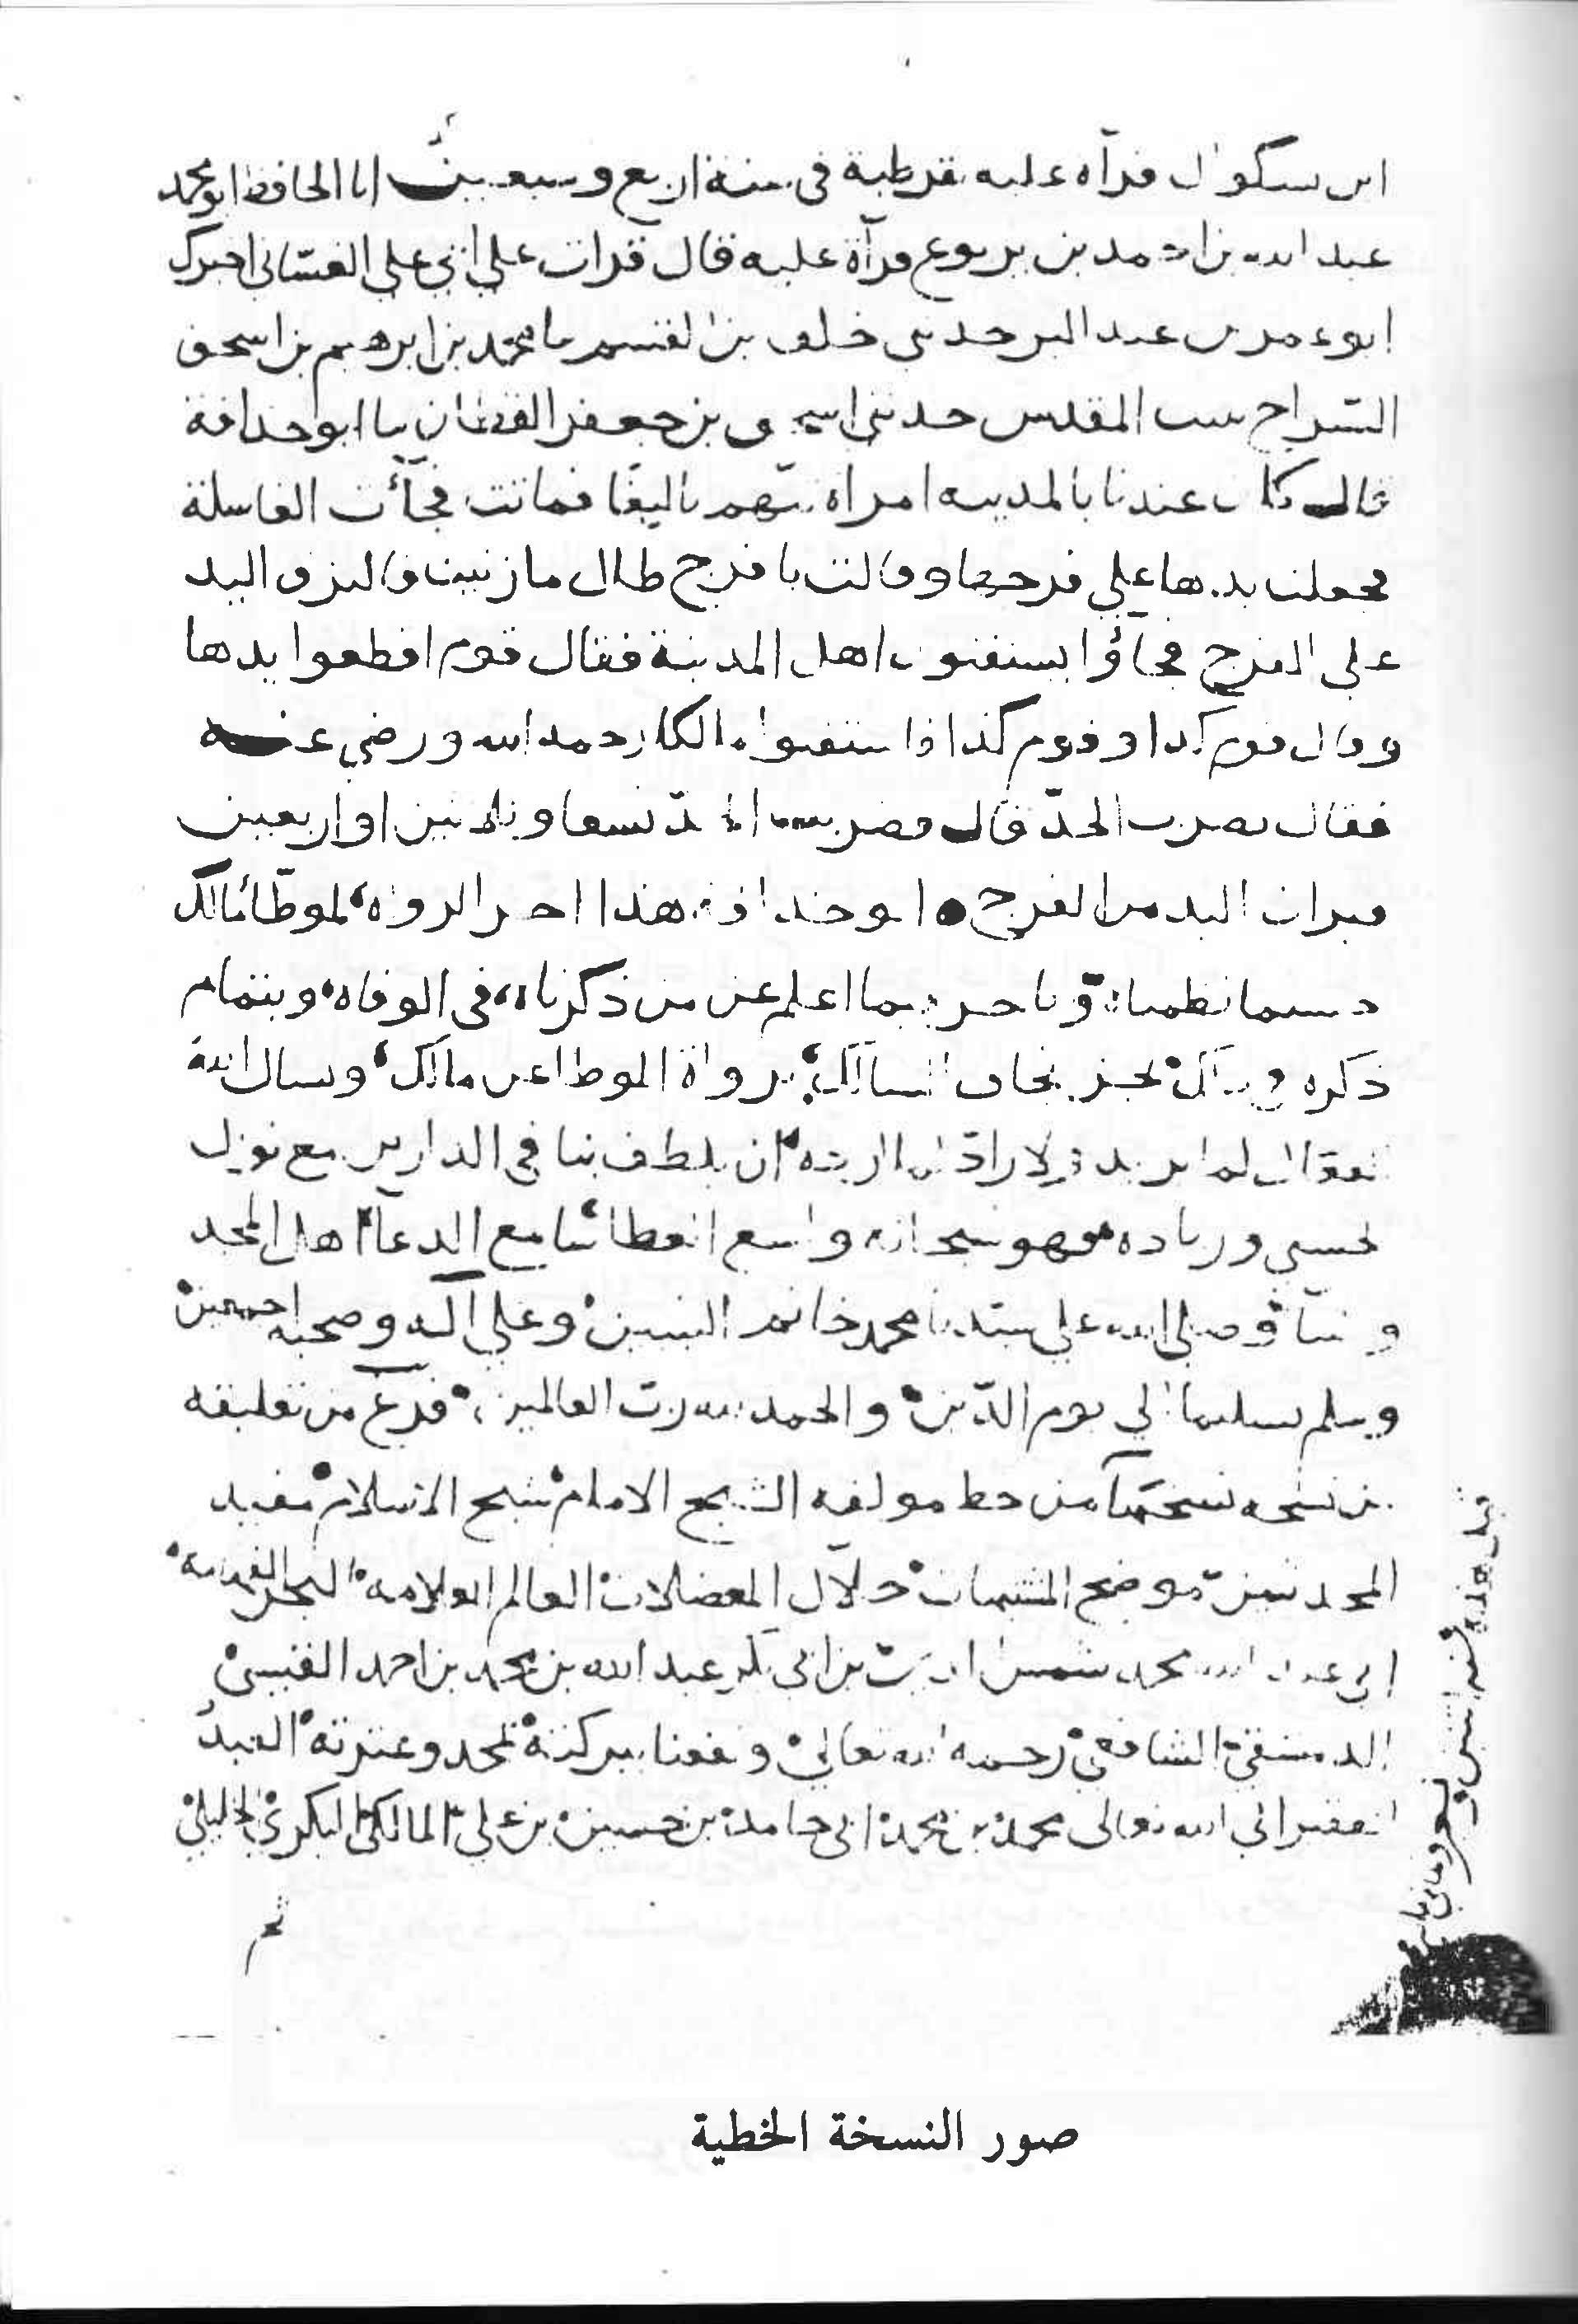 ابن بشكوال قرآة عليه بقرطبة في سنة اربع وسبعين انا الحافظ ابو محمد
عبد الله بن احمد بن يربوع قرآة عليه قال قرات علي ابي علي الغساني اخبرك
ابو عمر بن عبد البر حدثني خلف بن القسم نا محمد بن ابرهيم بن اسحق
السراج ببيت المقدس حدثني اسحق بن جعفر القطان نا ابو حذافة
قال كان عندنا بالمدينه امراة تتهم بالبغا فماتت فجآت الغاسلة
فجعلت يدها علي فرجها وقالت يا فرج طال ما زنيت فالتزق اليد
علي الفرج فجاؤا يستفتون اهل المدينة فقال قوم اقطعوا يدها
وقال قوم كذا وقوم كذا فاستفتوا مالكا رحمه الله ورضي عنه
فقال تضرب الحد قال فضربت الحد تسعا وثلاثين او اربعين
فبرات اليد من الفرج ابو حذافة هذا اخر الرواه لموطا مالك
حسبما نظمناه وتاخر بما اعلم عن من ذكرناه في الوفاه وبتمام
ذكره وذلك نجز اتحاف السالك برواة الموطا عن مالك ونسال الله
الفعال لما يريد ان يلطف بنا في الدارين مع نويل
لحسني وزياده فهو سبحانه واسع العطا مع الدعا اهل المجد
وثنا وصلي الله علي سيدنا محمد خاتم النبيين وعلي آله وصحبه اجمعين
وسلم تسليما الي يوم الدين والحمد لله رب العالمين فرغ من تعليقه
من نسخه نسختها من خط مولفه الشيخ الامام شيخ الاسلام مفيد
المحدثين موضح المشتبهات حلال المعضلات العالم العلامه البحر الفهامه
ابي عبد الله محمد شمس الدين بن ابي بكر عبد الله بن محمد بن احمد القيسي
الدمشقي الشافعي رحمه الله تعالي ونفعنا ببركته بمحمد وعترته العبد
الفقير الي الله تعالى محمد بن محمد ابي حامد بن حسين بن علي المالكي البكري الخليلي
تم
صور النسخة الخطية